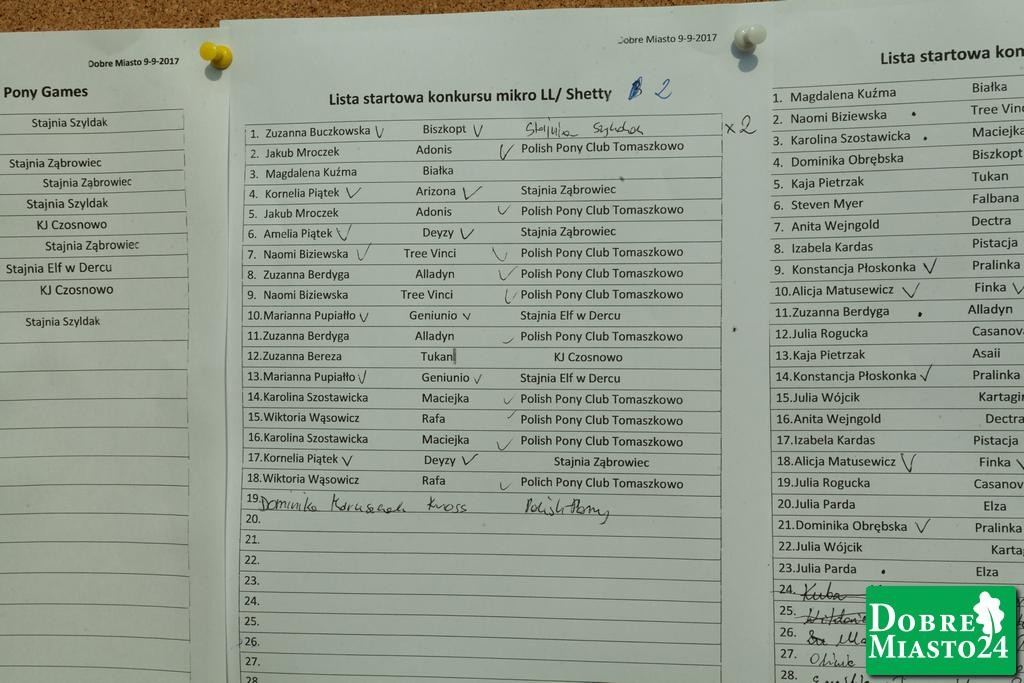 Dobre Miasto 9-9-2017
Pony Games
Stajnia Szyldak
Stajnia Ząbrowiec
Stajnia Ząbrowiec
Stajnia Szyldak
KJ Czosnowo
Stajnia Ząbrowiec
Stajnia Elf w Dercu
KJ Czosnowo
Stajnia Szyldak
Dobre Miasto 9-9-2017
Lista startowa konkursu mikro LL/ Shetty 2
1. Zuzanna Buczkowska Biszkopt Stajnia x2
2. Jakub Mroczek Adonis Polish Pony Club Tomaszkowo
3. Magdalena Kuźma Białka
4. Kornelia Piątek Arizona Stajnia Ząbrowiec
5. Jakub Mroczek Adonis Polish Pony Club Tomaszkowo
6. Amelia Piątek Deyzy Stajnia Ząbrowiec
7. Naomi Biziewska Tree Vinci Polish Pony Club Tomaszkowo
8. Zuzanna Berdyga Alladyn Polish Pony Club Tomaszkowo
9. Naomi Biziewska Tree Vinci Polish Pony Club Tomaszkowo
10. Marianna Pupiałło Geniunio Stajnia Elf w Dercu
11. Zuzanna Berdyga Alladyn Polish Pony Club Tomaszkowo
12. Zuzanna Bereza Tukan KJ Czosnowo
13. Marianna Pupiałło Geniunio Stajnia Elf w Dercu
14. Karolina Szostawicka Maciejka Polish Pony Club Tomaszkowo
15. Wiktoria Wąsowicz Rafa Polish Pony Club Tomaszkowo
16. Karolina Szostawicka Maciejka Polish Pony Club Tomaszkowo
17. Kornelia Piątek Deyzy Stajnia Ząbrowiec
18. Wiktoria Wąsowicz Rafa Polich Pony Club Tomaszkowo
19. Dominika Kross Polish Pony
20.
21.
22.
23.
24.
25.
26.
27.
28
Lista startowa kon
1. Magdalena Kuźma Białka
2. Naomi Biziewska Tree Vinc
3. Karolina Szostawicka Maciejka
4. Dominika Obrębska Biszkopt
5. Kaja Pietrzak Tukan
6. Steven Myer Falbana
7. Anita Wejngold Dectra
8. Izabela Kardas Pistacja
9. Konstancja Płoskonka Pralinka
10. Alicja Matusewicz Finka
11. Zuzanna Berdyga Alladyn
12. Julia Rogucka Casanov
13. Kaja Pietrzak Asaii
14. Konstancja Płoskonka Pralinka
15. Julia Wójcik Kartagin
16. Anita Wejngold Dectra
17. Izabela Kardas Pistacja
18. Alicja Matusewicz Finka
19. Julia Rogucka Casanov
20. Julia Parda Elza
21. Dominika Obrębska Pralinka
22. Julia Wójcik Karta
23. Julia Parda Elza
24. Kuba
25.
26.
27.
28.
DOBRE
MIASTO24